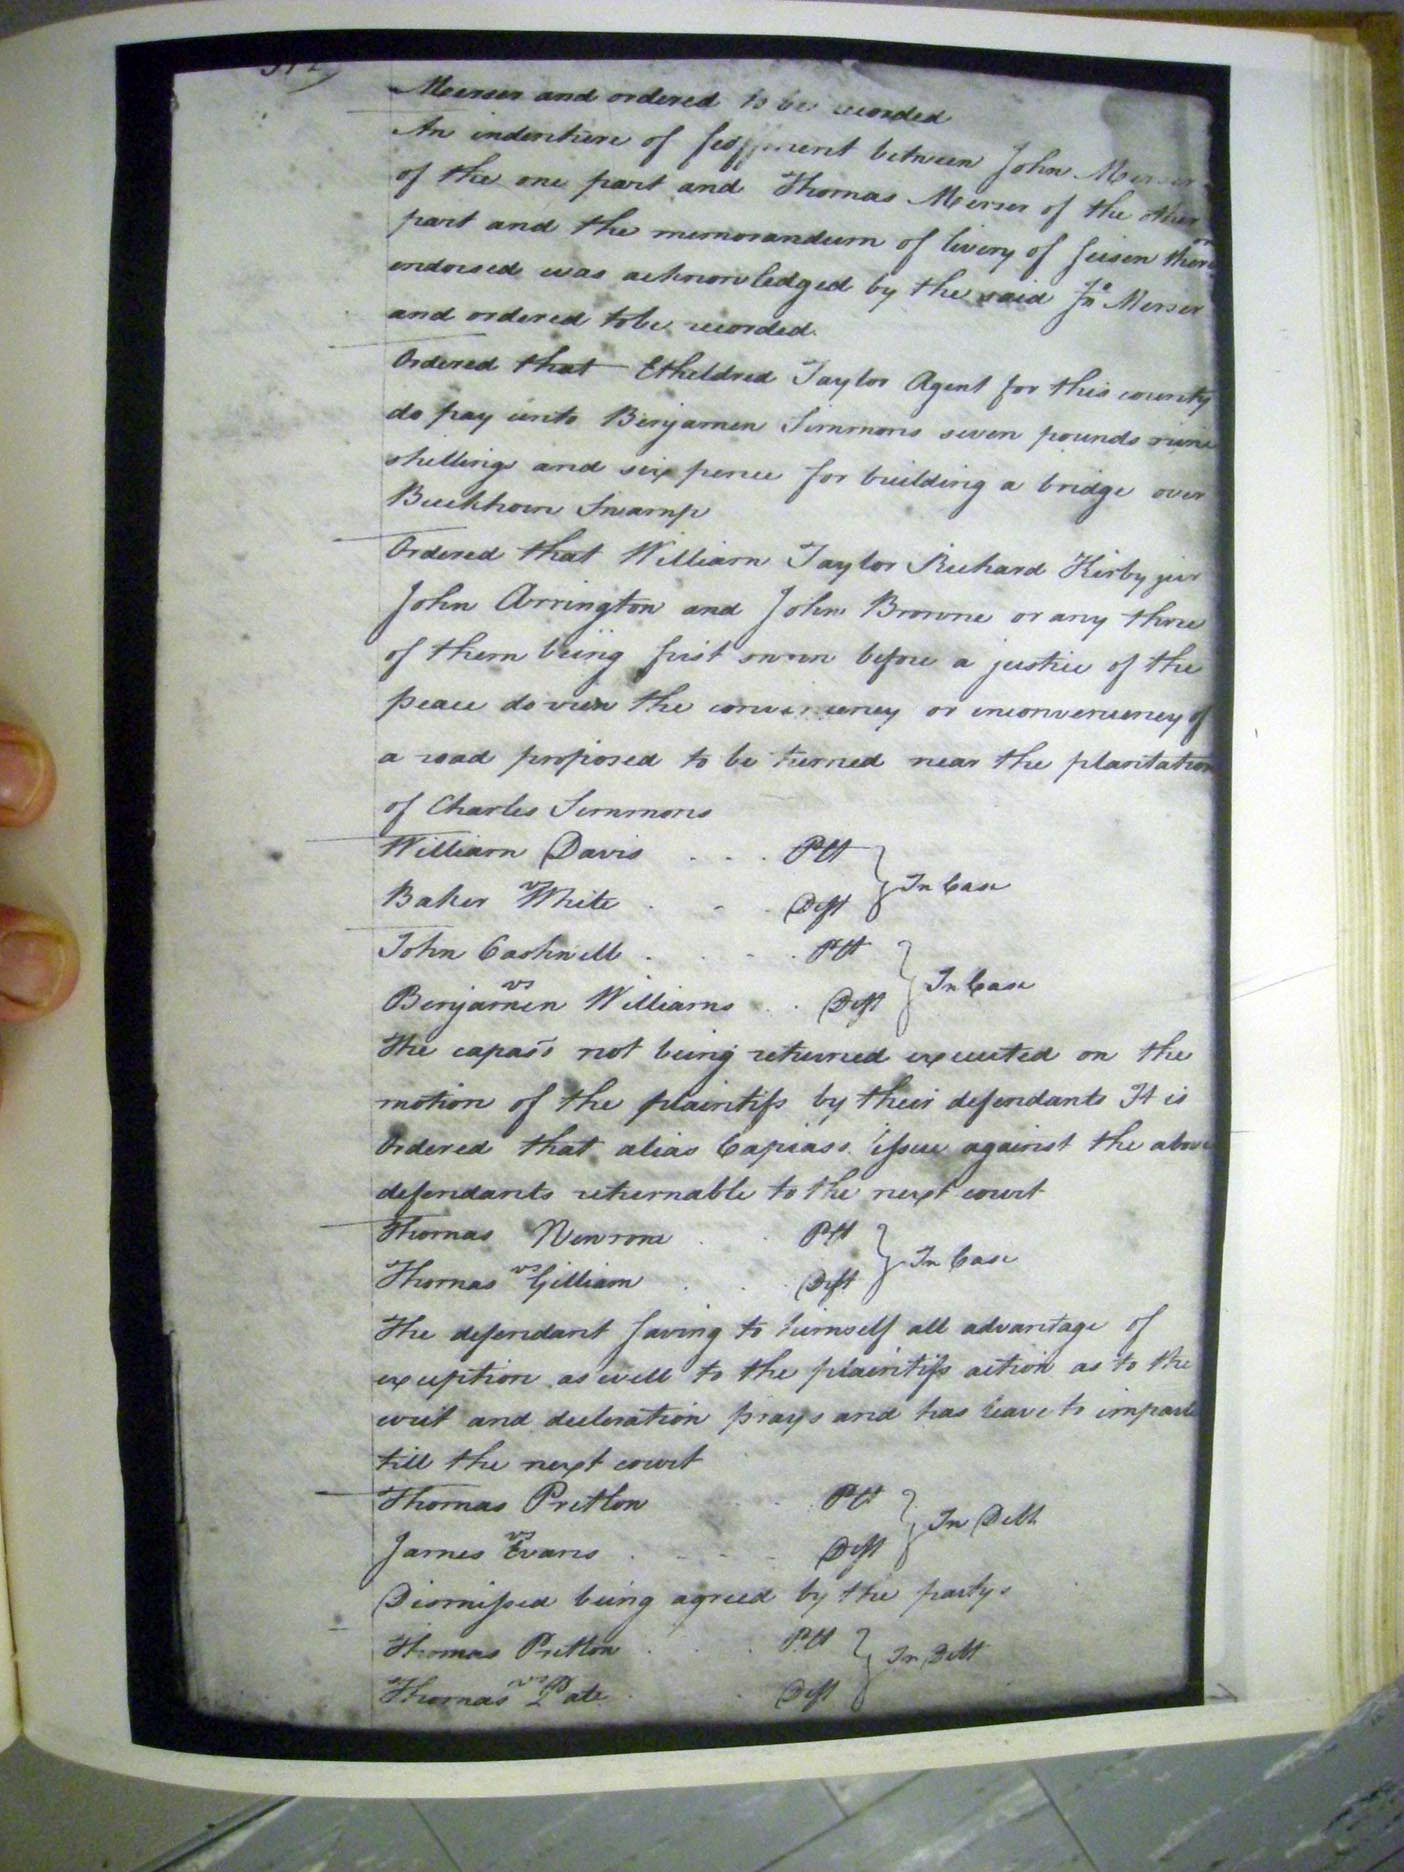 Merser and ordered to be recorded
An indenture of feoffment between John Merser
of the one part and Thomas Merser of the other
part and the memorandum of livery of seisen there
on
endorsed was acknowledged by the said Jno Merser
and ordered to be recorded.
Ordered that Etheldred Taylor Agent for this county
do pay unto Benjamen Simmons seven pounds nine
shillings and six pence for building a bridge over
Buckhorn Swamp
Ordered that William Taylor Richard Kirby jur
John Arrington and John Browne or any three
of them being first sworn before a justice of the
peace do view the conveniency or inconveniency of
a road proposed to be turned near the plantation
of Charles Simmons
William Davis . . . Plt
vs } In Case
Baker White . - . Deft
John Cashwell . . - . Plt
vs } In Case
Benjamen Williams . . Deft
The capass not being returned executed on the
motion of the plaintifs by their defendants It is
Ordered that alias Capiass issue against the above
defendants returnable to the next court
Thomas Newsome . . Plt
vs } In Case
Thomas Gilliam . . . Deft
The defendant saving to himself all advantage of
exception as well to the plaintifs action as to the
writ and decleration prays and has leave to imparle
till the next court
Thomas Pretlow . - . Plt
vs } In Debt
James Evans . - - - Deft
Dismissed being agreed by the partys
Thomas Pretlow . . . Plt
vs } In Debt
Thomas Pate . . Deft